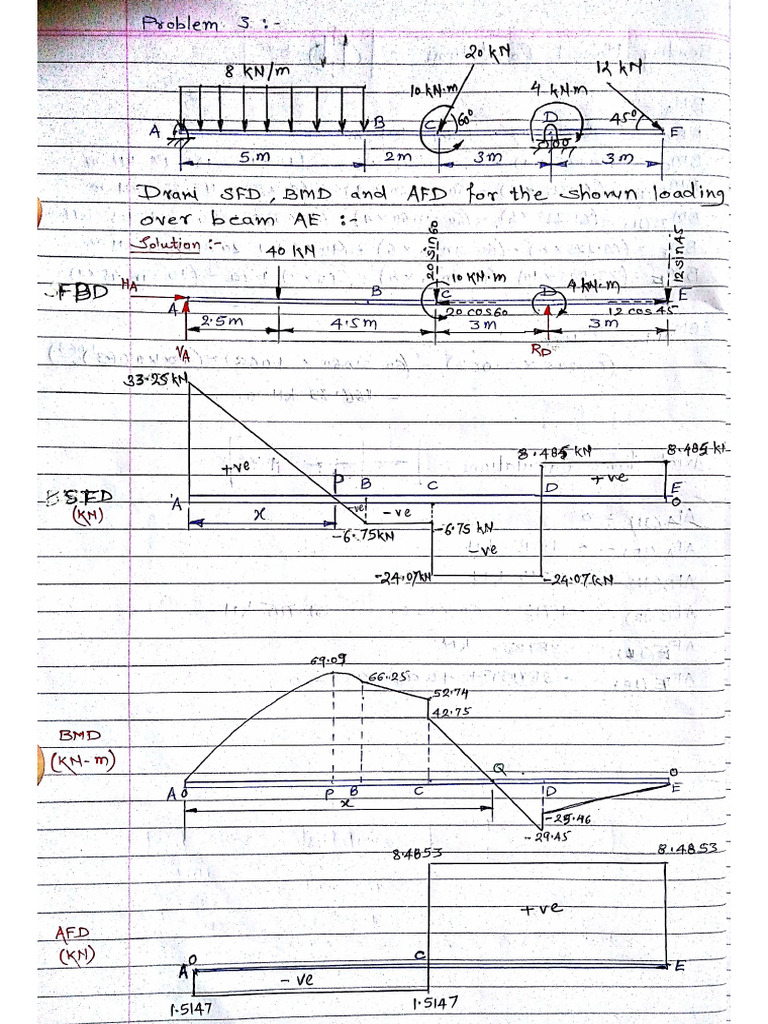 Problem 3 :-
20 kN
8 KN/m
10 kN.m
4 kN.m
12 kN
A
B
C
60°
D
45°
E
5 m
2m
3m
3m
Draw SFD, BMD and AFD for the shown loading
over beam AE :-
Solution :-
40 KN
20 sin60
10 KN.m
4 kN.m
12 sin 45
FBD
HA
A
B
C
D
E
20 cos60
12 cos 45
2.5m
4.5m
3m
3m
VA
RD
33.25 kN
8.485 kN
8.485 kN
+ve
P
B
C
+ve
SFD
(KN)
A
x
-ve
-ve
D
E
0
-6.75 KN
-6.75 KN
-ve
-24.07 kN
-24.07 KN
69.09
66.25
52.74
42.75
BMD
(KN-m)
Q
0
A
0
P
B
C
D
E
x
-25.46
-29.45
8.4853
8.4853
+ve
AFD
(KN)
0
A
C
E
-ve
1.5147
1.5147